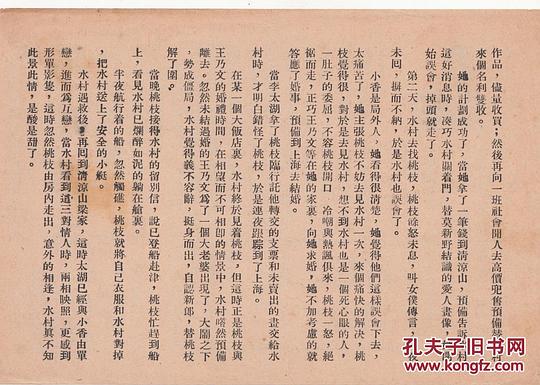 作品，儘量收買；然後再向一班社會聞人去高價兜售預備替水村
來個名利雙收。
她的計劃成功了，當她拿了一筆錢到清涼山，預備告訴水村
這好消息時，湊巧水村關着門，替莫新野結識的愛人畫像，
始誤會，掉頭就走了。
第二天，水村去找桃枝，桃枝餘怒未息，叫女僕傳言，夜
未回，摒而不納，於是水村也誤會了。
小香是局外人，她看得很清楚，她覺得他們這樣誤會下去，
太痛苦了，她主張桃枝不妨去見水村一次，來個痛快的解決，桃
枝覺得很對，於是去見水村，想不到水村也是一個死心眼的人，
一肚子的委屈，不容桃枝開口，冷嘲與熱諷俱來，桃枝一怒，絕
裾而走，正巧王乃文等在她的家裏，向她求婚，她不加考慮的就
答應了婚事，預備到上海去結婚。
當李太湖拿了桃枝臨行託他轉交的支票和未賣出的畫交給水
村時，才明白錯怪了桃枝，於是連夜跟踪到了上海。
在某一個大飯店裏，水村終於見着桃枝，但這時正是桃枝與
王乃文的婚禮時間，在相望而不可相卽的情景中，水村嗒然預備
離去。忽然未結過婚的王乃文爲了一個大老婆出現了，大鬧之下
，勢成僵局，水村覺得義不容辭，挺身而出，自認新郎，替桃枝
解了圍。
當晚桃枝接得水村的留別信，說已登船赴津，桃枝忙趕到船
上，看見水村已爛醉如泥的躺在艙裏。
半夜航行着的船，忽然觸礁，桃枝就將自己衣服和水村對掉
，把水村送上了安全的小艇。
水村遇救後，再回到清涼山梁家，這時太湖已經與小香由單
戀，進而爲互戀，當水村看到這三對情人時，兩相映照，更感到
形單影隻，這時忽然桃枝由房內走出，意外的相逢，水村眞不知
此景此情，是酸是甜了。
孔夫子旧书网